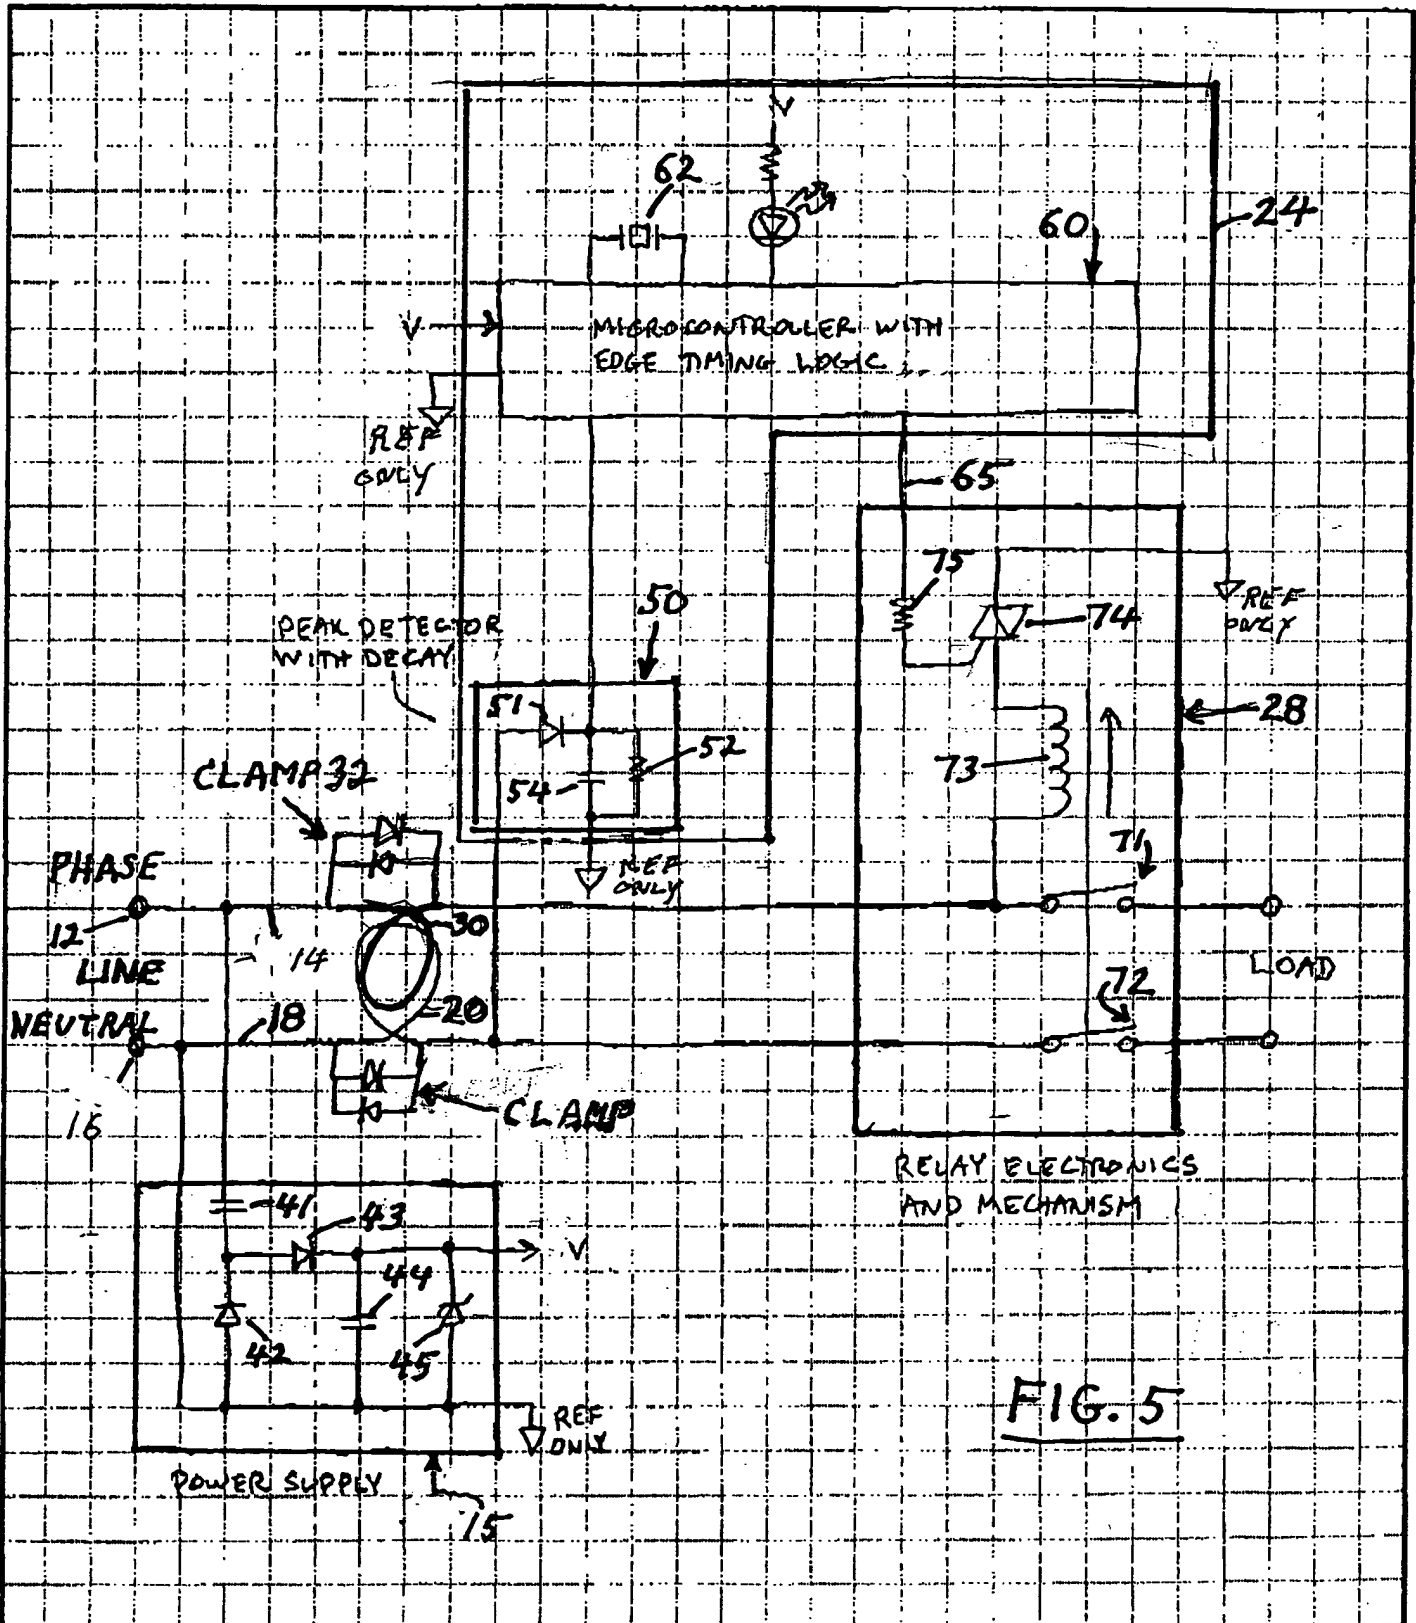 V
62
60
24
V
MICROCONTROLLER WITH
EDGE TIMING LOGIC
REF
ONLY
65
75
50
REF
ONLY
74
PEAK DETECTOR
WITH DECAY
51
52
54
28
73
CLAMP 32
71
REF
ONLY
PHASE
12
30
14
LINE
LOAD
72
20
NEUTRAL
18
CLAMP
16
RELAY ELECTRONICS
AND MECHANISM
41
43
V
44
42
45
REF
ONLY
FIG. 5
POWER SUPPLY
15